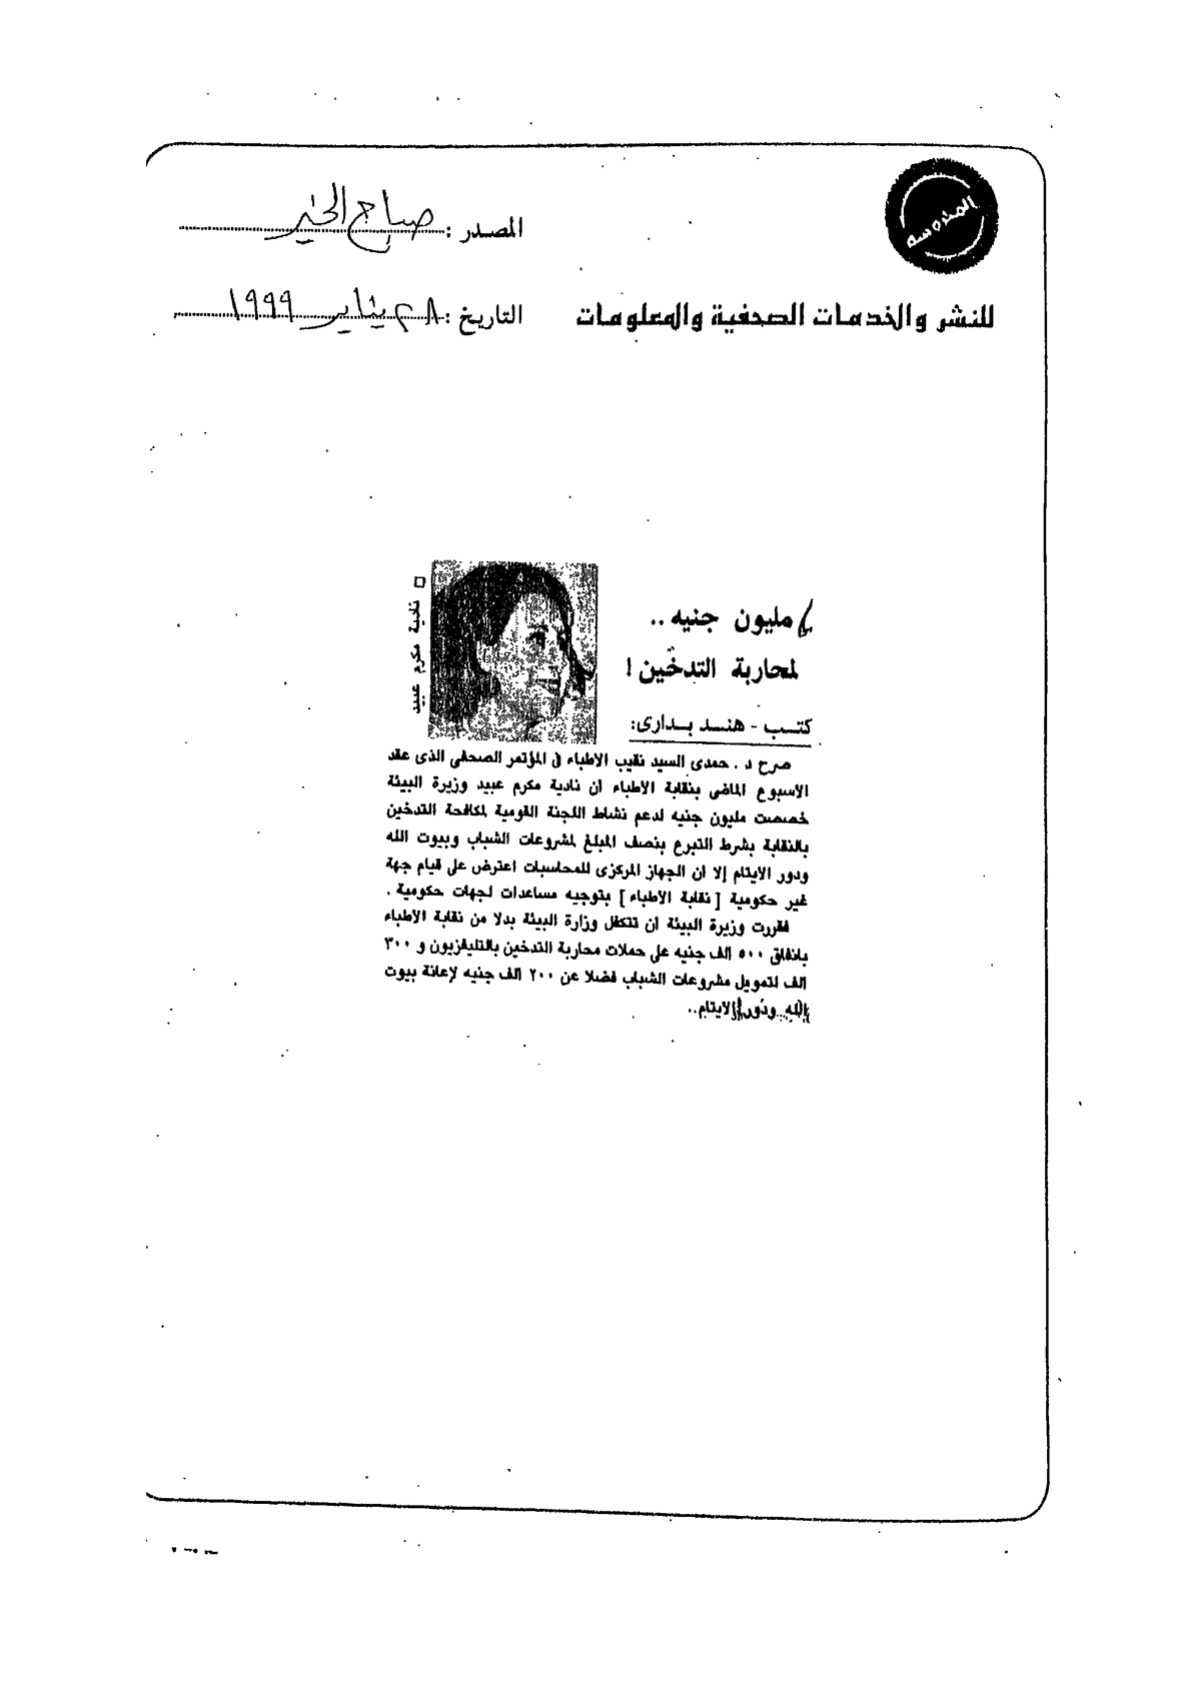 المصدر : صباح الخير
للنشر والخدمات الصحفية والمعلومات
التاريخ : ٢٨ يناير ١٩٩٩
مليون جنيه ..
لمحاربة التدخين !
□ نادية مكرم عبيد
كتب - هند بدارى:
صرح د . حمدى السيد نقيب الاطباء فى المؤتمر الصحفى الذى عقد
الاسبوع الماضى بنقابة الاطباء أن نادية مكرم عبيد وزيرة البيئة
خصصت مليون جنيه لدعم نشاط اللجنة القومية لمكافحة التدخين
بالنقابة بشرط التبرع بنصف المبلغ لمشروعات الشباب وبيوت الله
ودور الايتام إلا أن الجهاز المركزى للمحاسبات اعترض على قيام جهة
غير حكومية [ نقابة الاطباء ] بتوجيه مساعدات لجهات حكومية .
فقررت وزيرة البيئة أن تتكفل وزارة البيئة بدلا من نقابة الاطباء
بانفاق ٥٠٠ الف جنيه على حملات محاربة التدخين بالتليفزيون و ٣٠٠
الف لتمويل مشروعات الشباب فضلا عن ٢٠٠ الف جنيه لإعانة بيوت
الله ودور الايتام..